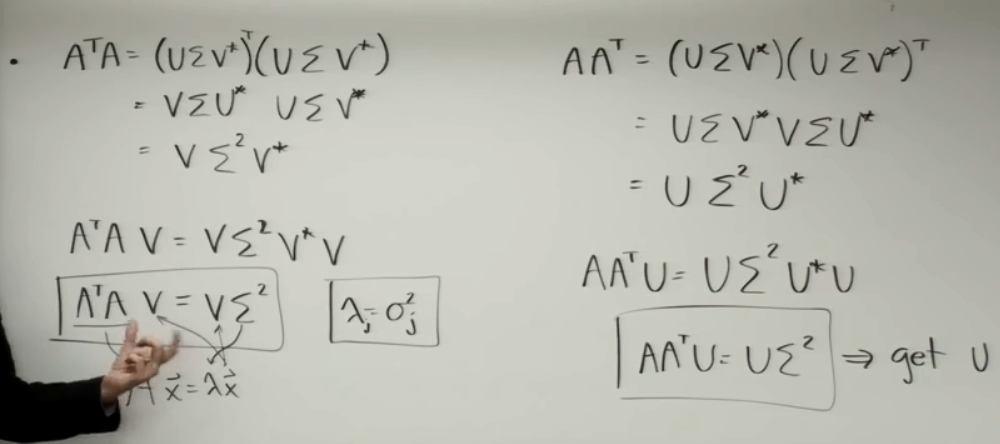 • AᵀA = (UΣV*)ᵀ(UΣV*)
= VΣU* UΣV*
= VΣ²V*
AᵀA V = VΣ²V*V
AᵀA V = VΣ²
λⱼ = σⱼ²
A x⃗ = λx⃗
AAᵀ = (UΣV*)(UΣV*)ᵀ
= UΣV*VΣU*
= UΣ²U*
AAᵀU = UΣ²U*U
AAᵀU = UΣ² ⇒ get U